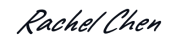 Rachel Chen